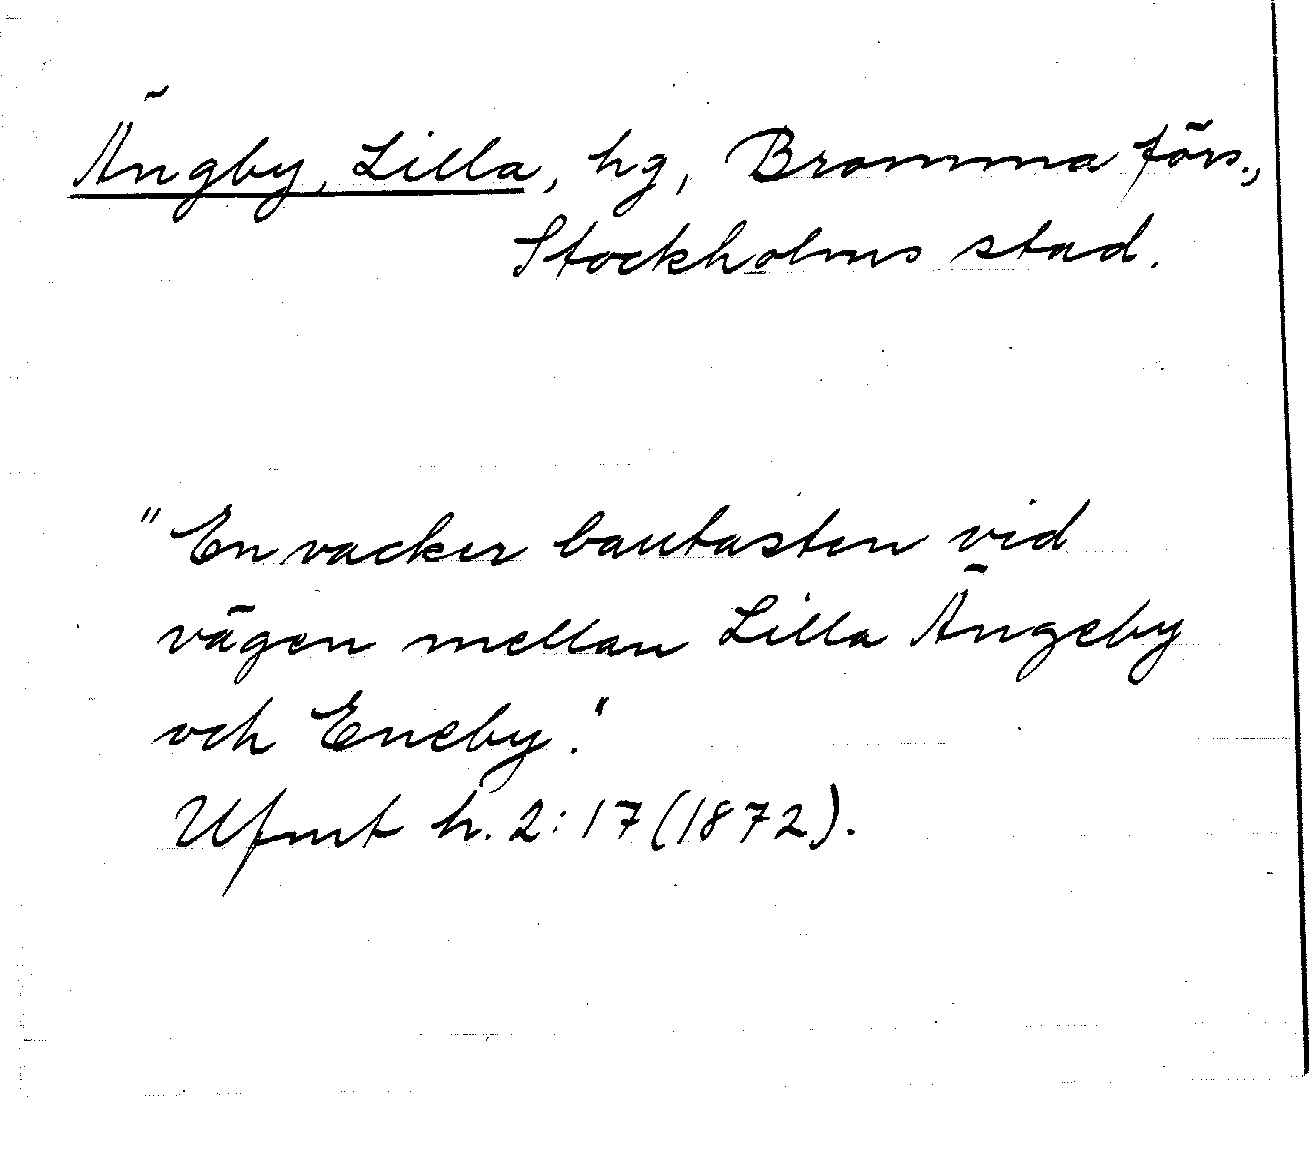 Ängby, Lilla, hg, Bromma förs.,
Stockholms stad.
"En vacker bautasten vid
vägen mellan Lilla Ängeby
och Eneby."
Ufmt h. 2:17 (1872).